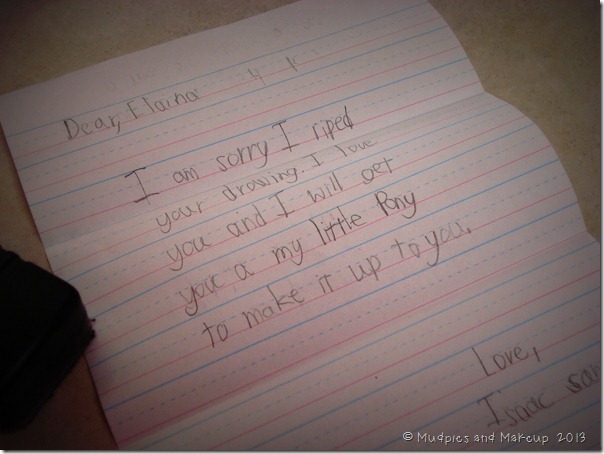 Dear, Elaina
I am sorry I riped
your drawing. I love
you and I will get
you a my little Pony
to make it up to you.
Love,
Isaac san
© Mudpies and Makeup 2013